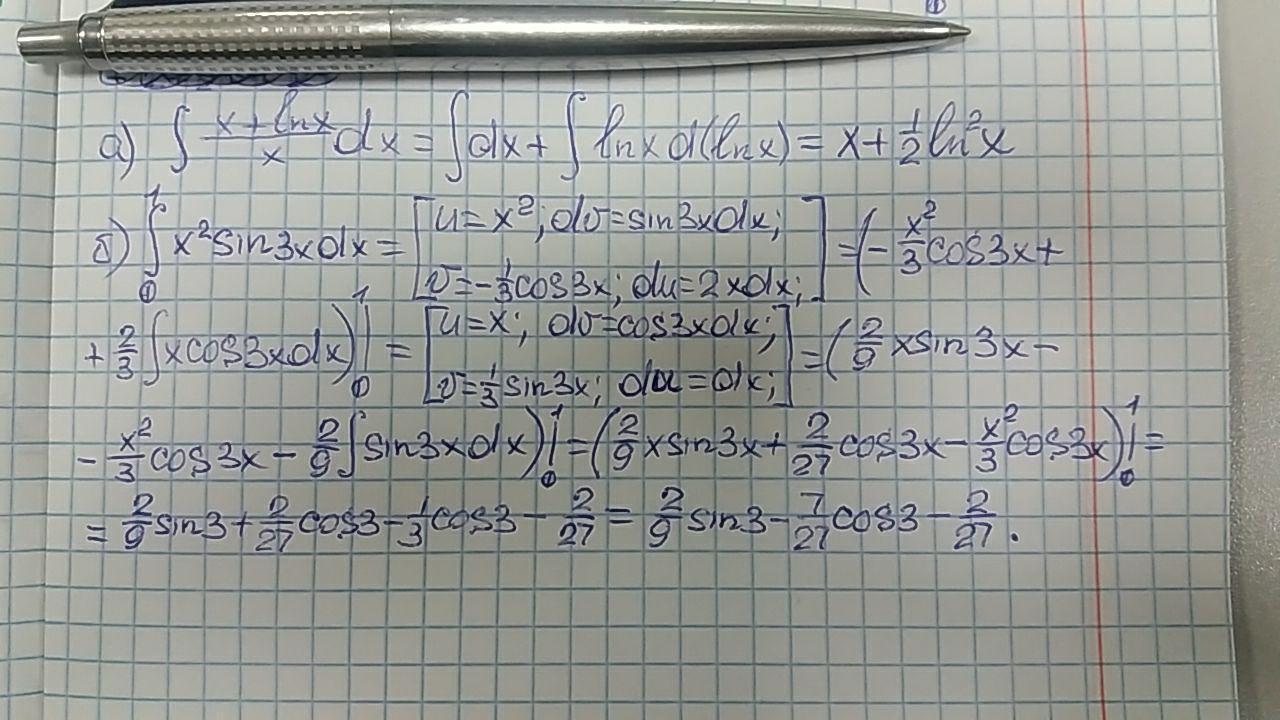 а) ∫ (x+lnx)/x dx = ∫dx + ∫ lnx d(lnx) = x + 1/2 ln²x
б) ∫₀¹ x²sin3xdx = [u=x²; dv=sin3xdx; v=-1/3cos3x; du=2xdx;] = (-x²/3 cos3x +
+ 2/3 ∫xcos3xdx)|₀¹ = [u=x; dv=cos3xdx; v=1/3sin3x; du=dx;] = (2/9 xsin3x -
- x²/3 cos3x - 2/9 ∫sin3xdx)|₀¹ = (2/9 xsin3x + 2/27 cos3x - x²/3 cos3x)|₀¹ =
= 2/9 sin3 + 2/27 cos3 - 1/3 cos3 - 2/27 = 2/9 sin3 - 7/27 cos3 - 2/27.